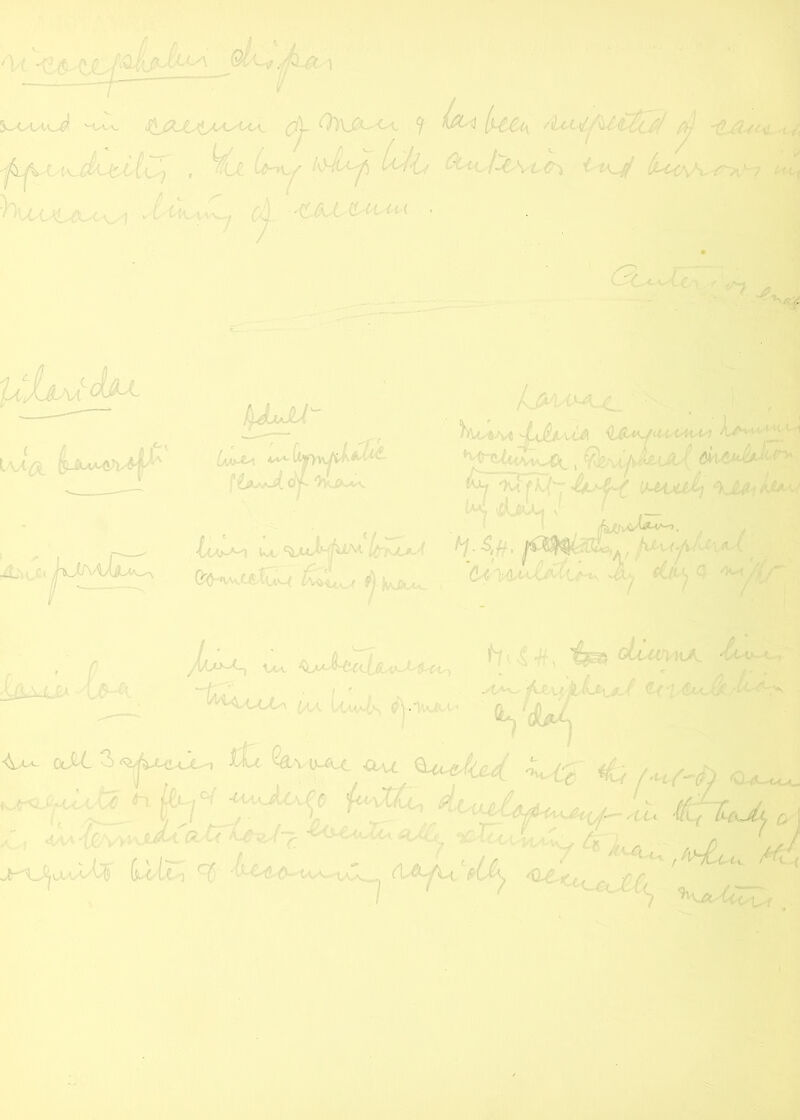 Tricocephalus dispar
found in caecum of man & has been suspected of causing
appendicitis. The long whip like anterior end burrows into
mucous lining of caecum.
anterior end
Filaridae
Adult
Larvae
bancrofti
Lives in lymphatic
glands of man
Microfilaria sanguinis hominis
nocturna, Peripheral circulation
by night
by day
perstans
lives in subperitoneal
connective tissue of man.
M.S.H. perstans, peripheral
circulation by day & night
Loa-loa
lives in subcutaneous
tissues in limbs of man
M.S.H. diurna lives
in peripheral circulation
by day
In all 3 species the larvae are sucked into the gut of some
mosquito or fly & undergo further development in the body of
intermediate host eventually returning to man, when the
mosquito bites & becoming rapidly sexually mature.